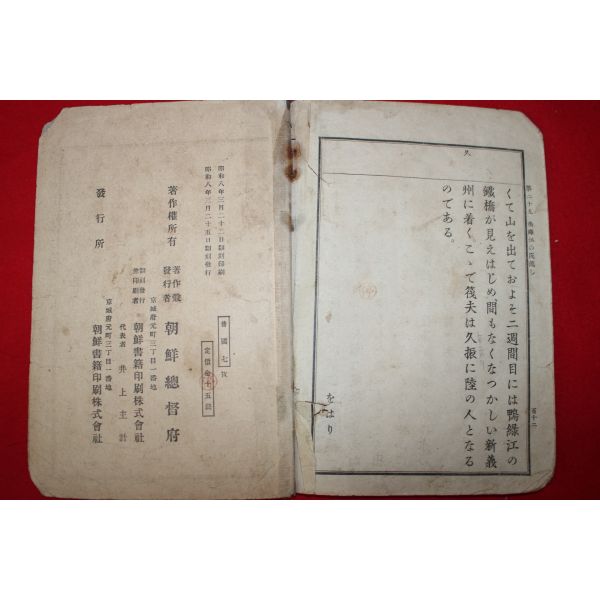 久
くて山を出ておよそ二週間目には鴨綠江の
鐵橋が見えはじめ間もなくなつかしい新義
州に着くこゝで筏夫は久振に陸の人となる
のである。
をはり
百十二
昭和八年三月二十二日翻刻印刷
昭和八年三月二十五日翻刻發行
普國七
定價金十五錢
著作權所有
著作兼
發行者
朝鮮總督府
京城府元町三丁目一番地
翻刻發行
兼印刷者
朝鮮書籍印刷株式會社
代表者 井上主計
京城府元町三丁目一番地
發行所
朝鮮書籍印刷株式會社